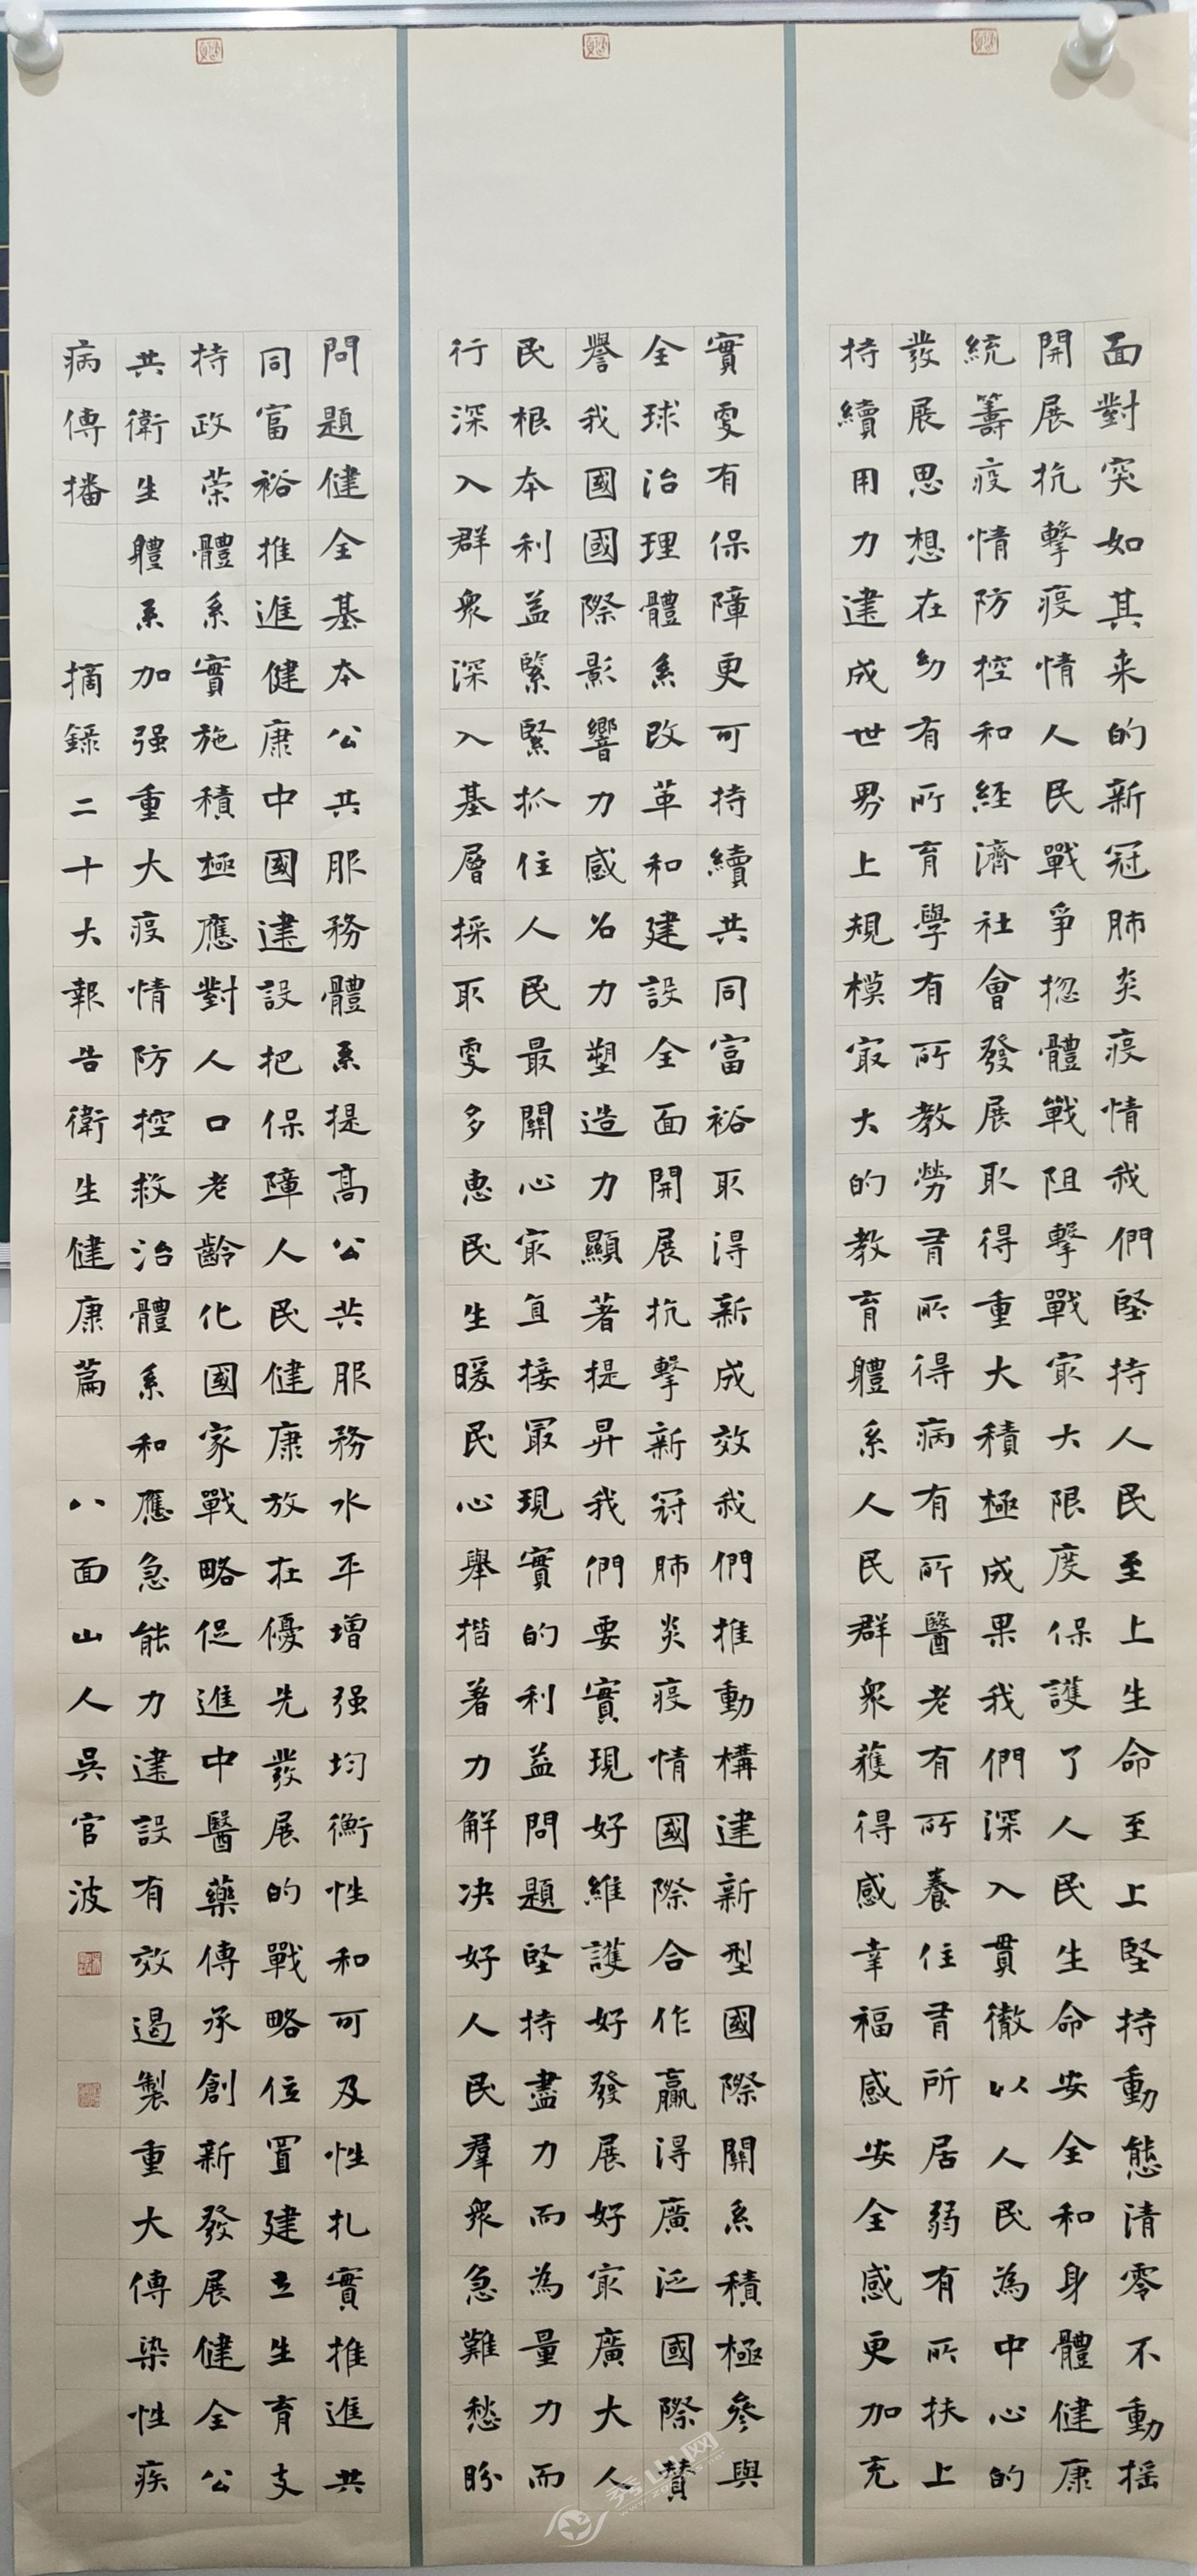 面對突如其来的新冠肺炎疫情我們堅持人民至上生命至上堅持動態清零不動搖
開展抗擊疫情人民戰爭揔體戰阻擊戰㝡大限度保護了人民生命安全和身體健康
統籌疫情防控和經濟社會發展取得重大積極成果我們深入貫徹以人民為中心的
發展思想在幼有所育學有所教勞有所得病有所醫老有所養住有所居弱有所扶上
持續用力建成世界上規模㝡大的教育體系人民群衆獲得感幸福感安全感更加充
實更有保障更可持續共同富裕取得新成效我們推動構建新型國際關系積極參與
全球治理體系改革和建設全面開展抗擊新冠肺炎疫情國際合作贏得廣泛國際贊
譽我國國際影響力感召力塑造力顯著提昇我們要實現好維護好發展好㝡廣大人
民根本利益緊緊抓住人民最關心㝡直接最現實的利益問題堅持盡力而為量力而
行深入群衆深入基層採取更多惠民生暖民心舉措着力解决好人民羣衆急難愁盼
問題健全基本公共服務體系提高公共服務水平增强均衡性和可及性扎實推進共
同富裕推進健康中國建設把保障人民健康放在優先發展的戰略位置建立生育支
持政策體系實施積極應對人口老齡化國家戰略促進中醫藥傳承創新發展健全公
共衛生體系加强重大疫情防控救治體系和應急能力建設有效遏製重大傳染性疾
病傳播 摘録二十大報告衛生健康篇 八面山人吳官波
秀山网